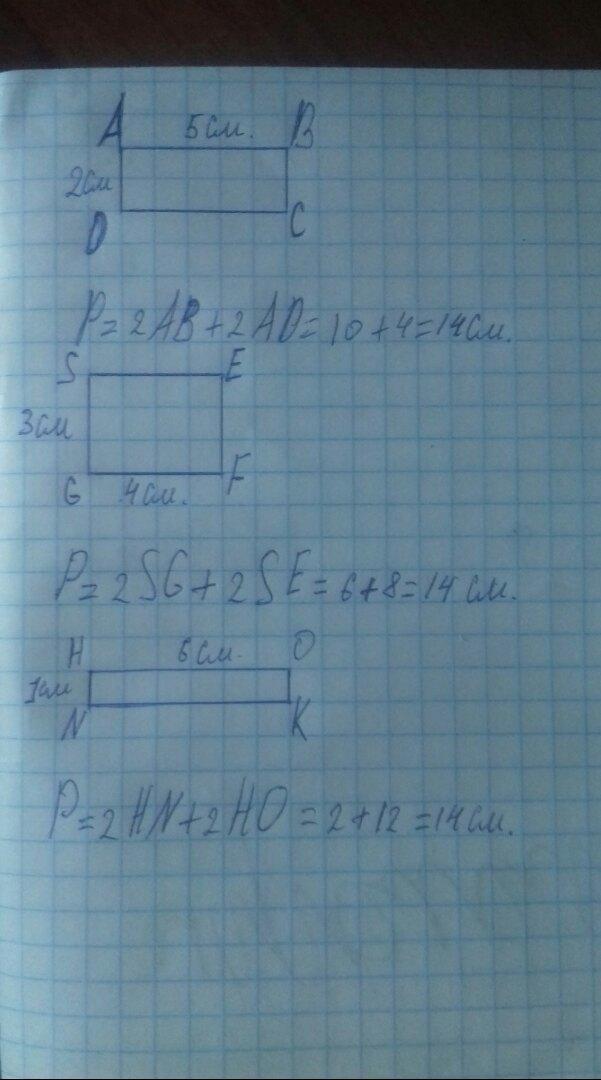 A 5см. B
2см
D C
P=2AB+2AD=10+4=14см.
S E
3см
G 4см. F
P=2SG+2SE=6+8=14см.
H 6см. O
1см
N K
P=2HN+2HO=2+12=14см.